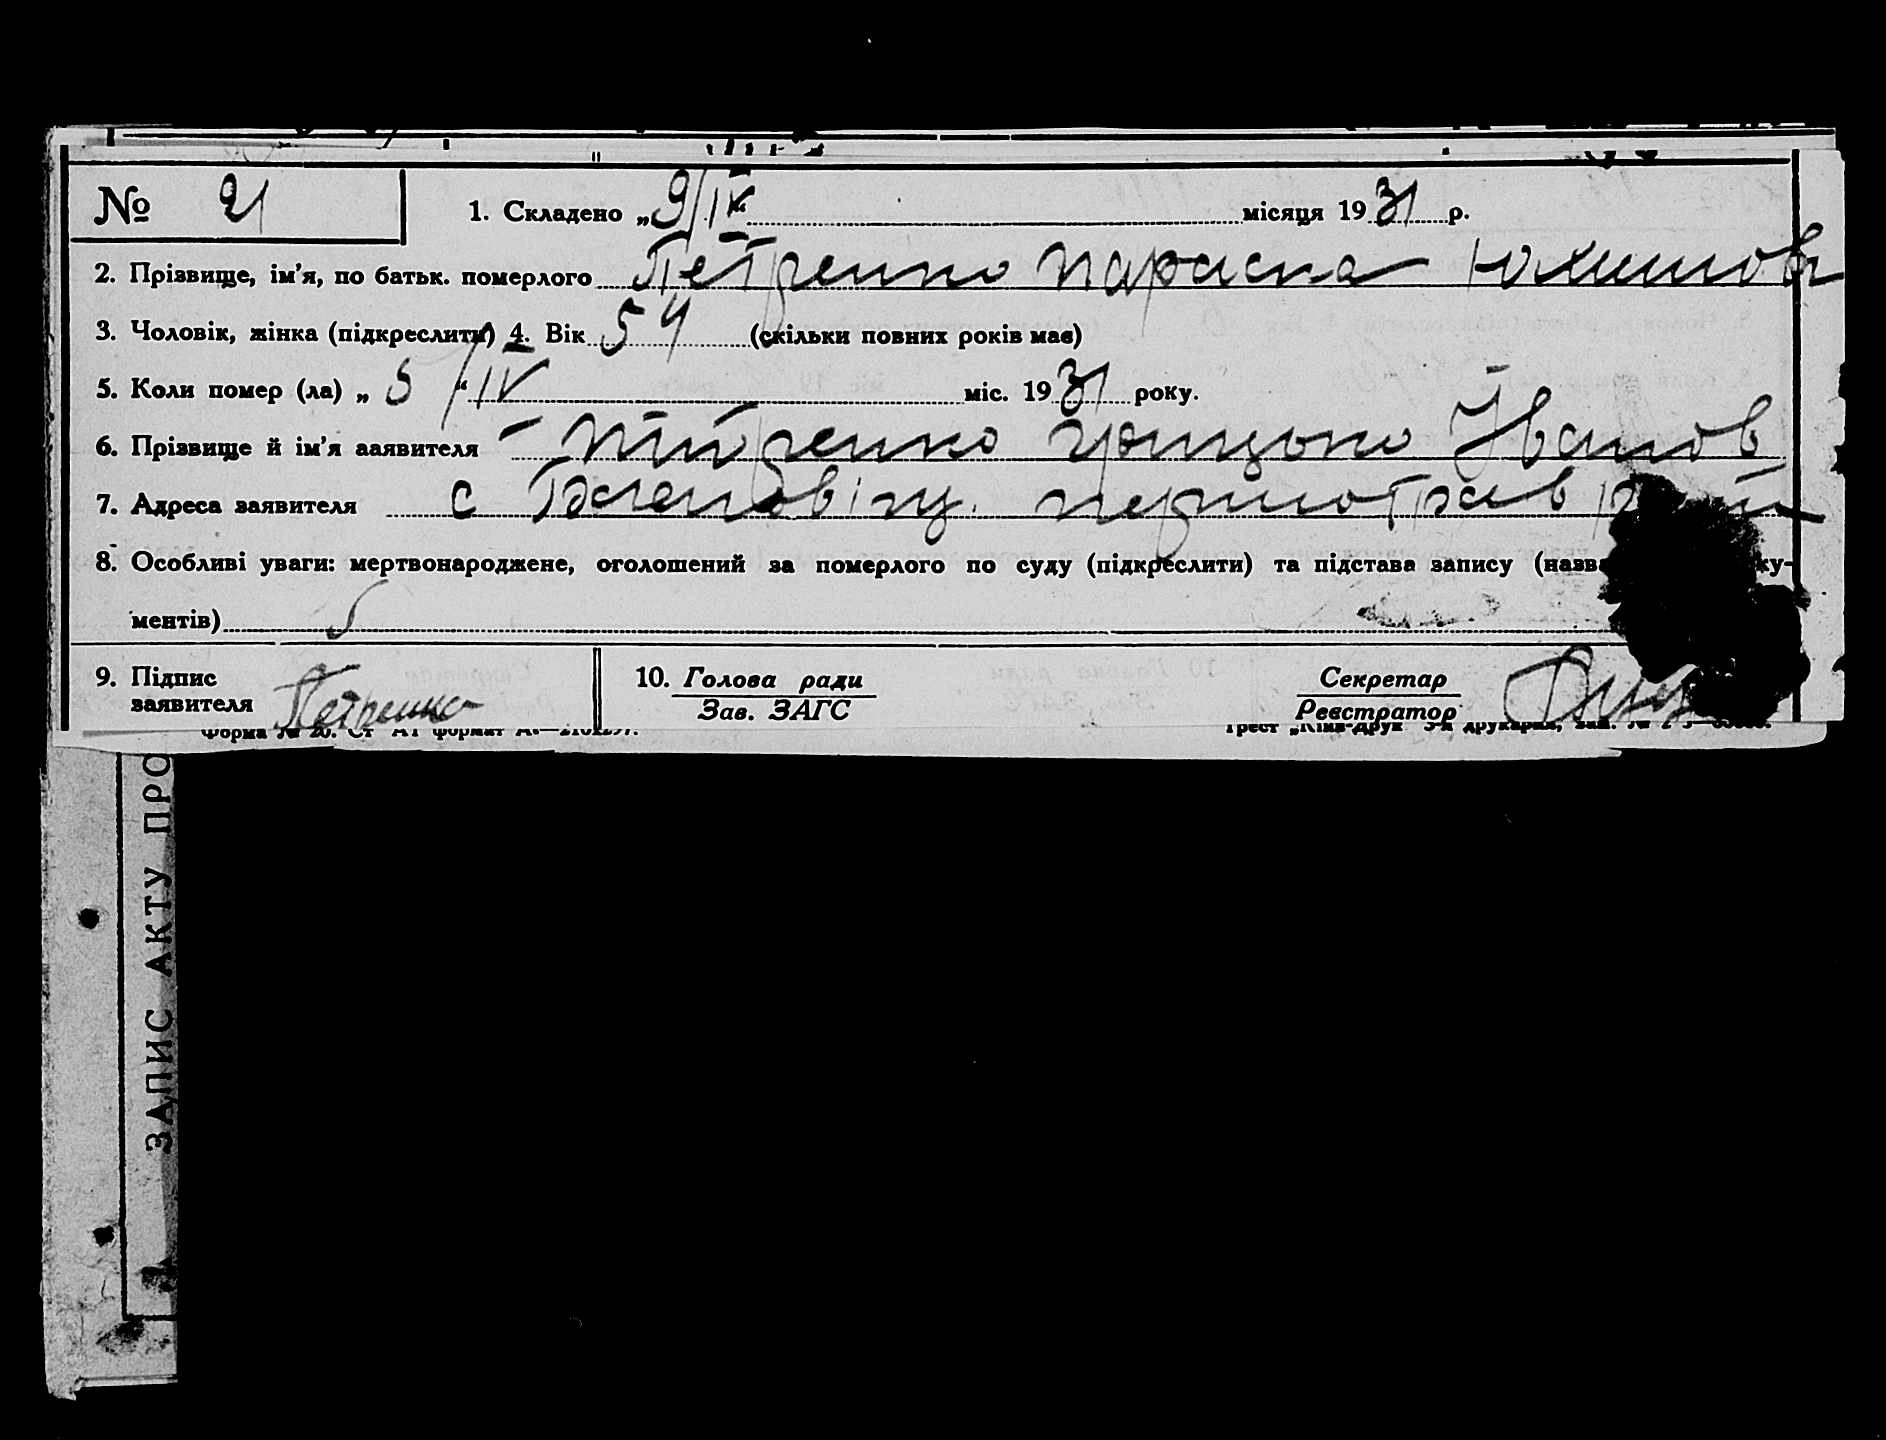 № 21 1. Складено „9/IV“ місяця 1931 р.
2. Прізвище, ім’я, по батьк. померлого Петренко Параска Юхимов
3. Чоловік, жінка (підкреслити) 4. Вік 54 (скільки повних років має)
5. Коли помер (ла) „5/IV“ міс. 1931 року.
6. Прізвище й ім’я заявителя – Петренко Грицько Іванов
7. Адреса заявителя с першотрав
8. Особливі уваги: мертвонароджене, оголошений за померлого по суду (підкреслити) та підстава запису (назва ку-
ментів)
9. Підпис заявителя Петренко
10. Голова ради
Зав. ЗАГС
Секретар
Реєстратор
Форма № 20. Ст А1 формат
Трест „Київ-Друк“ 3-я друкарня, Зам. №
ЗАПИС АКТУ ПРО